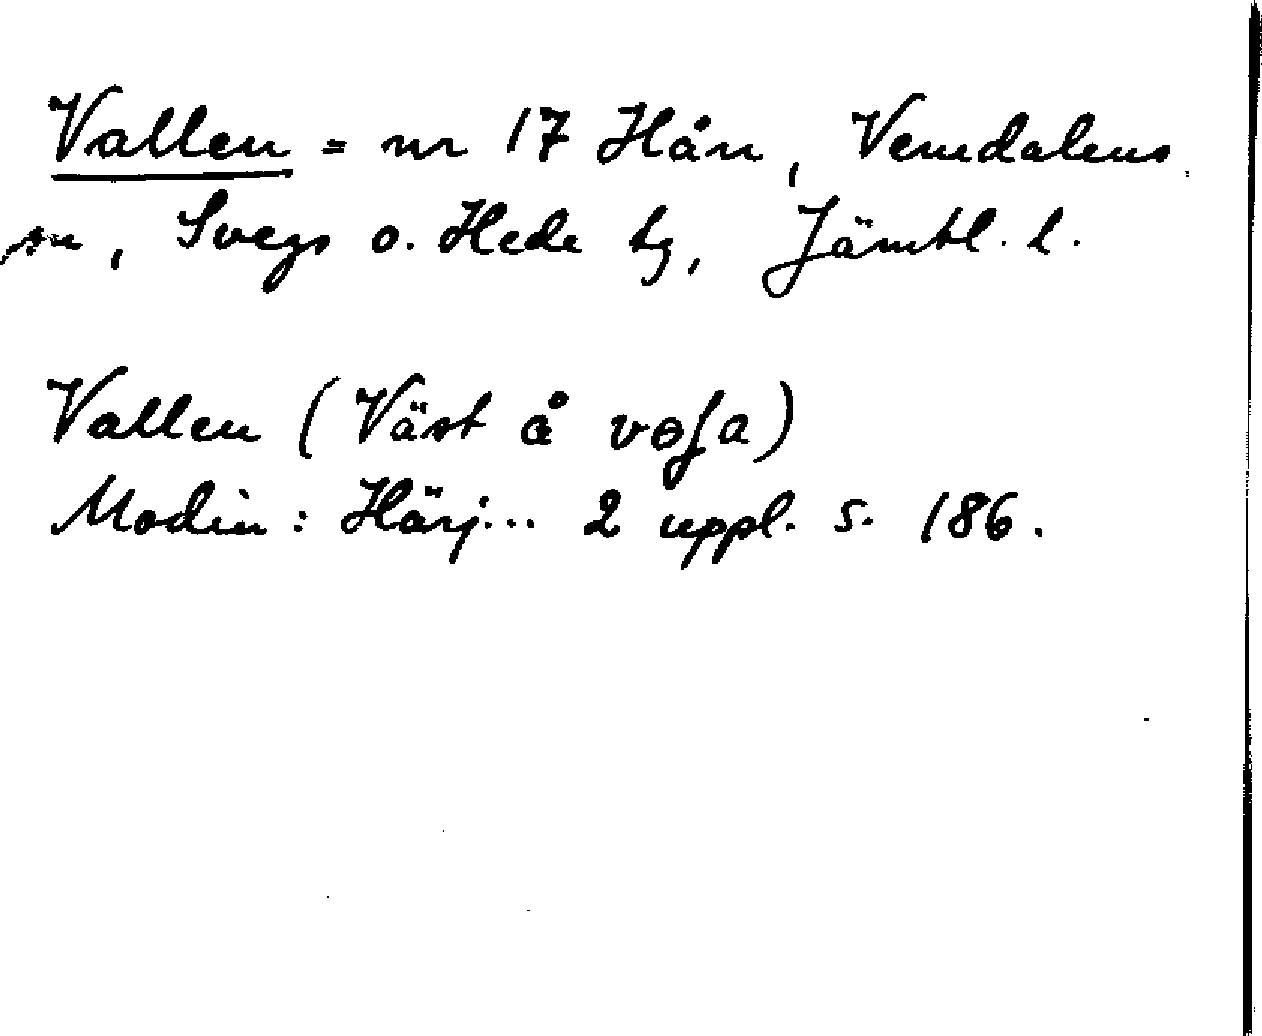 Vallen = nr 17 Hån, Vemdalens
sn, Svegs o. Hede tg, Jämtl. l.
Vallen (Väst å voſa)
Modin: Härj... 2 uppl. s. 186.